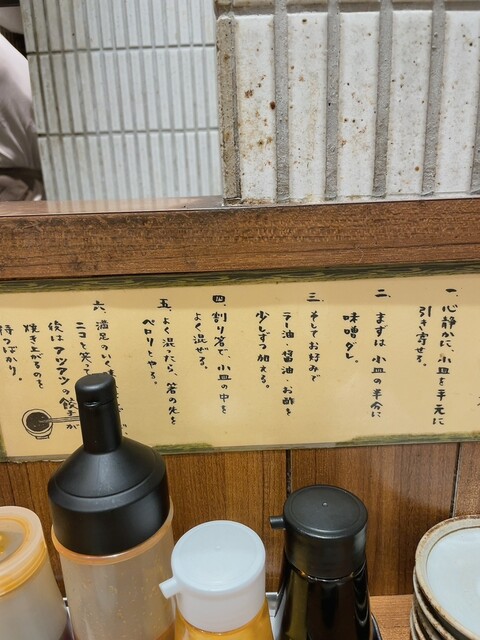 一、心静かに、小皿を手元に
引き寄せる。
二、まずは小皿の半分に
味噌ダレ。
三、そしてお好みで
ラー油・醤油・お酢を
少しずつ加える。
四、割り箸で、小皿の中を
よく混ぜる。
五、よく混ったら、箸の先を
ペロリとやる。
六、満足のいく
ニコと笑って
後はアツアツの餃子が
焼き上がるのを
待つばかり。